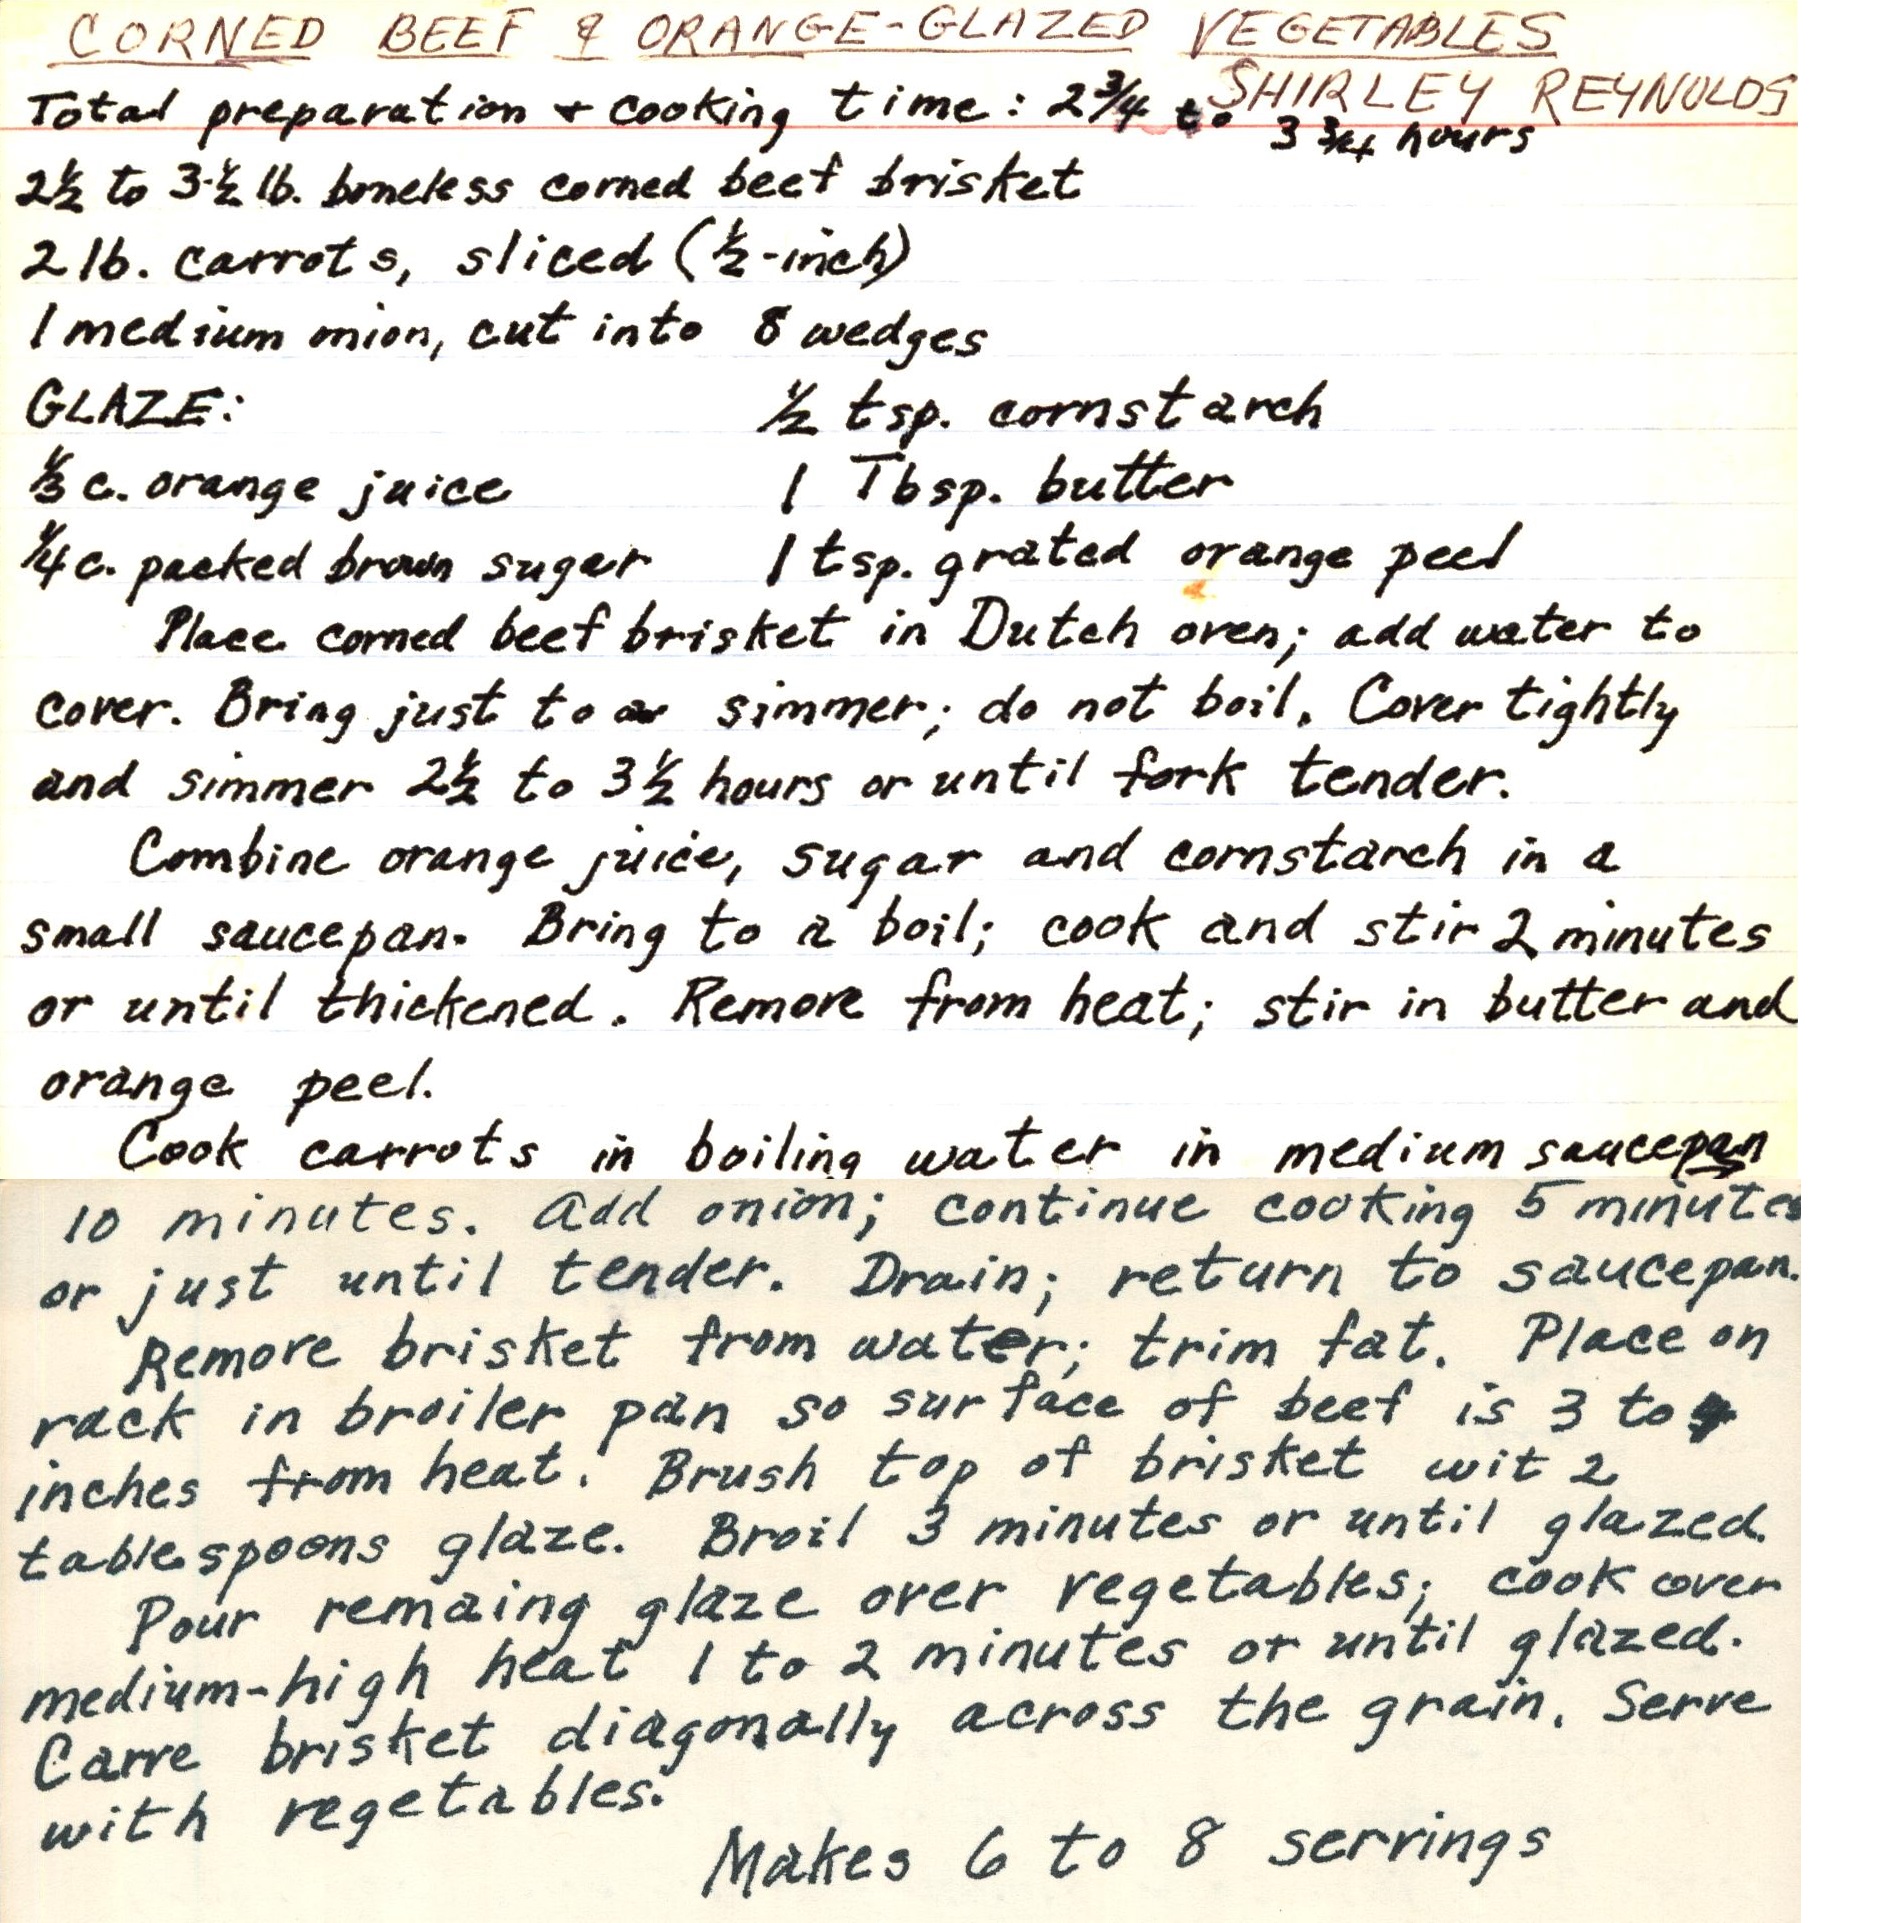 CORNED BEEF & ORANGE-GLAZED VEGETABLES
SHIRLEY REYNOLDS
Total preparation + cooking time: 2 3/4 to 3 3/4 hours
2 1/2 to 3-1/2 lb. boneless corned beef brisket
2 lb. carrots, sliced (1/2-inch)
1 medium onion, cut into 8 wedges
GLAZE: 1/2 tsp. cornstarch
1/3 c. orange juice 1 Tbsp. butter
1/4 c. packed brown sugar 1 tsp. grated orange peel
Place corned beef brisket in Dutch oven; add water to
cover. Bring just to a simmer; do not boil. Cover tightly
and simmer 2 1/2 to 3 1/2 hours or until fork tender.
Combine orange juice, sugar and cornstarch in a
small saucepan. Bring to a boil; cook and stir 2 minutes
or until thickened. Remove from heat; stir in butter and
orange peel.
Cook carrots in boiling water in medium saucepan
10 minutes. Add onion; continue cooking 5 minutes
or just until tender. Drain; return to saucepan.
Remove brisket from water; trim fat. Place on
rack in broiler pan so surface of beef is 3 to 4
inches from heat. Brush top of brisket wit 2
tablespoons glaze. Broil 3 minutes or until glazed.
Pour remaing glaze over vegetables; cook over
medium-high heat 1 to 2 minutes or until glazed.
Carve brisket diagonally across the grain. Serve
with vegetables.
Makes 6 to 8 servings